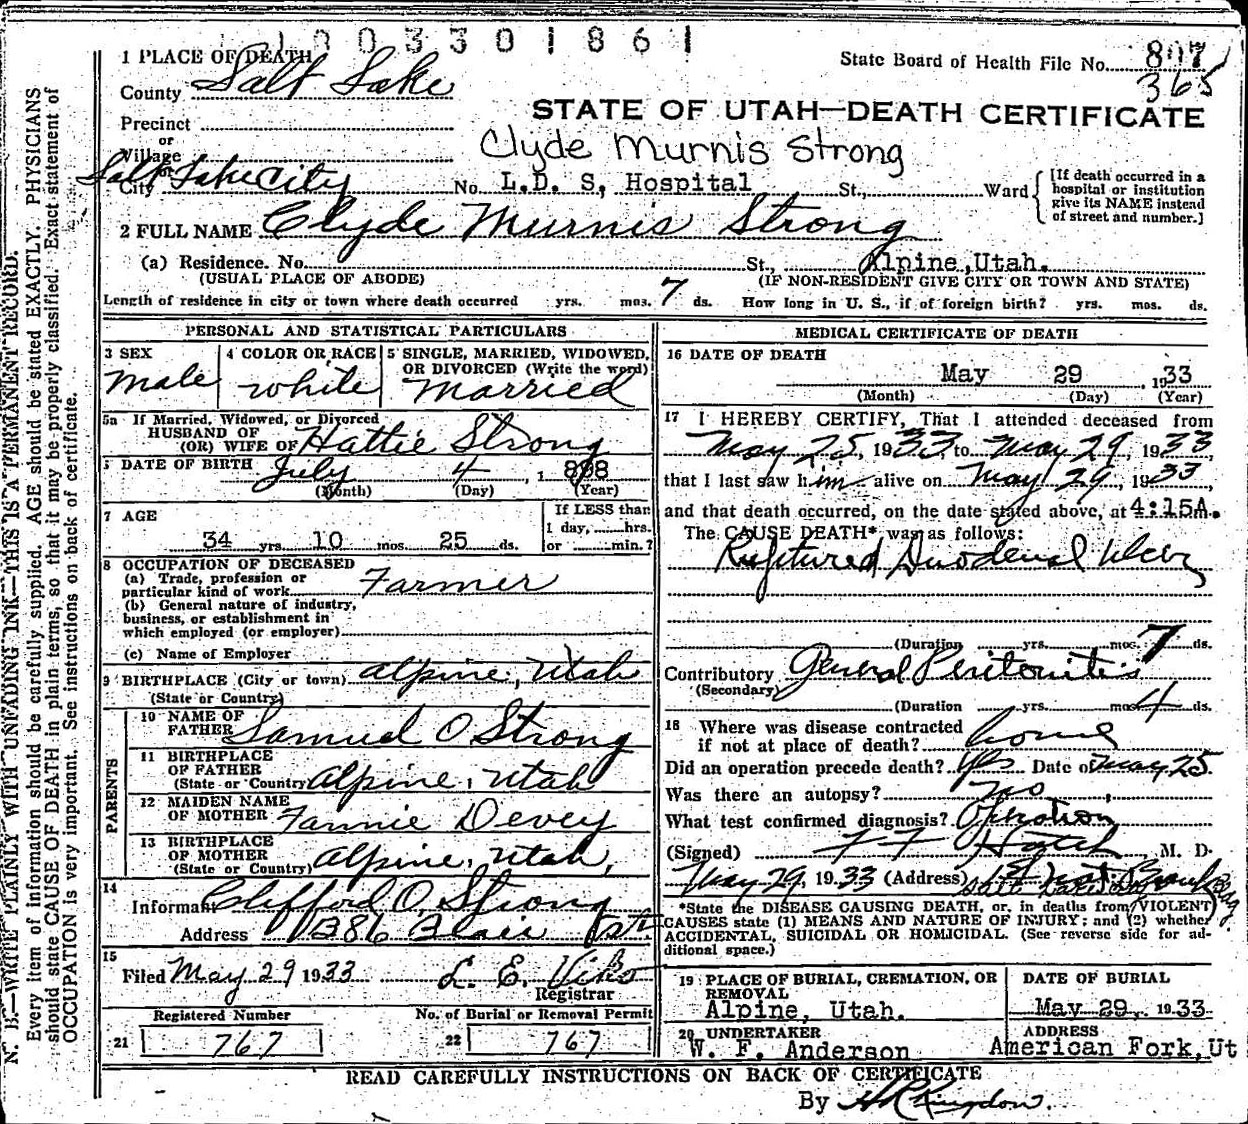 1 0 0 3 3 0 1 8 6 1
1 PLACE OF DEATH
State Board of Health File No. 807
365
County Salt Lake
STATE OF UTAH—DEATH CERTIFICATE
Precinct
or
Village
Clyde Murnis Strong
or
City Salt Lake City No. L.D. S, Hospital St., Ward
[If death occurred in a
hospital or institution
give its NAME instead
of street and number.]
2 FULL NAME Clyde Murnis Strong
(a) Residence. No. St., Alpine, Utah.
(USUAL PLACE OF ABODE) (IF NON-RESIDENT GIVE CITY OR TOWN AND STATE)
Length of residence in city or town where death occurred yrs. mos. 7 ds. How long in U. S., if of foreign birth? yrs. mos. ds.
PERSONAL AND STATISTICAL PARTICULARS
3 SEX
Male
4 COLOR OR RACE
White
5 SINGLE, MARRIED, WIDOWED,
OR DIVORCED (Write the word)
Married
5a If Married, Widowed, or Divorced
HUSBAND OF
(OR) WIFE OF Hattie Strong
DATE OF BIRTH July 4, 1898
(Month) (Day) (Year)
7 AGE
34 yrs. 10 mos. 25 ds.
If LESS than
1 day, hrs.
or min.?
8 OCCUPATION OF DECEASED
(a) Trade, profession or
particular kind of work Farmer
(b) General nature of industry,
business, or establishment in
which employed (or employer)
(c) Name of Employer
9 BIRTHPLACE (City or town) Alpine, Utah
(State or Country)
PARENTS
10 NAME OF
FATHER Samuel O Strong
11 BIRTHPLACE
OF FATHER
(State or Country) Alpine, Utah
12 MAIDEN NAME
OF MOTHER Fannie Devey
13 BIRTHPLACE
OF MOTHER
(State or Country) Alpine, Utah,
14
Informant Clifford O, Strong
Address 1386 Blair
15
Filed May 29 1933 L. E. Viko
Registrar
Registered Number
21 767
No. of Burial or Removal Permit
22 767
MEDICAL CERTIFICATE OF DEATH
16 DATE OF DEATH
May 29, 1933
(Month) (Day) (Year)
17 I HEREBY CERTIFY, That I attended deceased from
May 25, 1933, to May 29, 1933,
that I last saw him alive on May 29, 1933,
and that death occurred, on the date stated above, at 4:15A.m.
The CAUSE DEATH* was as follows:
Ruptured Duodenal Ulcer
(Duration yrs. mos. 7 ds.
Contributory General Peritonitis
(Secondary)
(Duration yrs. mos. 4 ds.
18 Where was disease contracted
if not at place of death? home
Did an operation precede death? Yes Date of May 25.
Was there an autopsy? No
What test confirmed diagnosis? Operation
(Signed) F F Hatch M. D.
May 29, 1933 (Address) Bank Bldg
*State the DISEASE CAUSING DEATH, or, in deaths from VIOLENT
CAUSES state (1) MEANS AND NATURE OF INJURY; and (2) whether
ACCIDENTAL, SUICIDAL OR HOMICIDAL. (See reverse side for ad-
ditional space.)
19 PLACE OF BURIAL, CREMATION, OR
REMOVAL
Alpine, Utah.
DATE OF BURIAL
May 29, 1933
20 UNDERTAKER
W. F. Anderson
ADDRESS
American Fork, Ut
READ CAREFULLY INSTRUCTIONS ON BACK OF CERTIFICATE
By
N. B.—WRITE PLAINLY WITH UNFADING INK—THIS IS A PERMANENT RECORD.
Every item of information should be carefully supplied. AGE should be stated EXACTLY. PHYSICIANS
should state CAUSE OF DEATH in plain terms, so that it may be properly classified. Exact statement of
OCCUPATION is very important. See instructions on back of certificate.